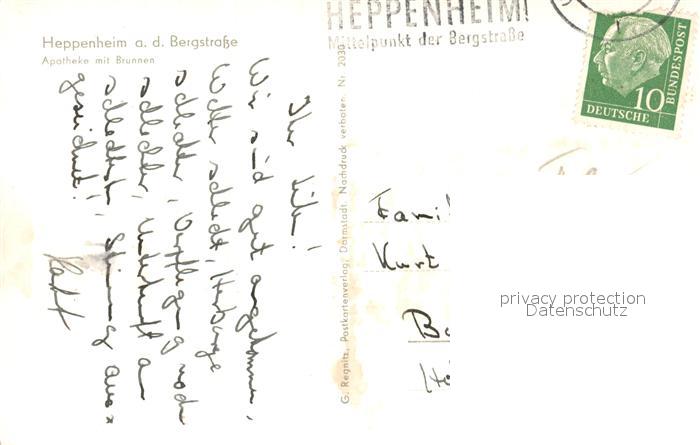 Heppenheim a. d. Bergstraße
Apotheke mit Brunnen
HEPPENHEIM!
Mittelpunkt der Bergstraße
DEUTSCHE
BUNDESPOST
10
Ihr Lieben!
Wir sind gut angekommen,
Wetter schlecht, Herberge
schlechter, Verpflegung noch
schlechter, Unterkunft am
schlechtesten, Stimmung aus=
gezeichnet!
G. Regnitz, Postkartenverlag, Darmstadt. Nachdruck verboten. Nr. 2030
Fami
Kurt
privacy protection
Datenschutz